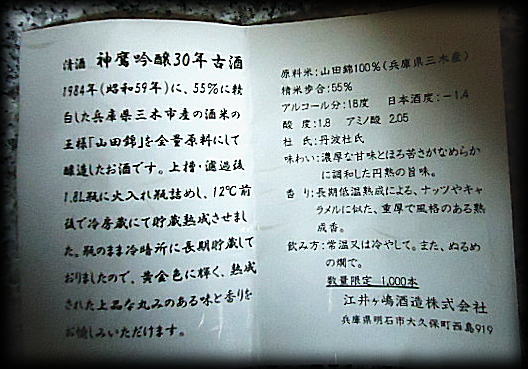 清酒 神鷹吟醸30年古酒
1984年(昭和59年)に、55%に精
白した兵庫県三木市産の酒米の
王様「山田錦」を全量原料にして
醸造したお酒です。上槽・濾過後
1.8L瓶に火入れ瓶詰めし、12℃前
後で冷房蔵にて貯蔵熟成させまし
た。瓶のまま冷暗所に長期貯蔵して
おりましたので、黄金色に輝く、熟成
された上品な丸みのある味と香りを
お愉しみいただけます。
原料米:山田錦100%(兵庫県三木産)
精米歩合:55%
アルコール分:18度 日本酒度:-1.4
酸度:1.8 アミノ酸 2.05
杜氏:丹波杜氏
味わい:濃厚な甘味とほろ苦さがなめらか
に調和した円熟の旨味。
香り:長期低温熟成による、ナッツやキャ
ラメルに似た、重厚で風格のある熟
成香。
飲み方:常温又は冷やして。また、ぬるめ
の燗で。
数量限定 1,000本
江井ヶ嶋酒造株式会社
兵庫県明石市大久保町西島919